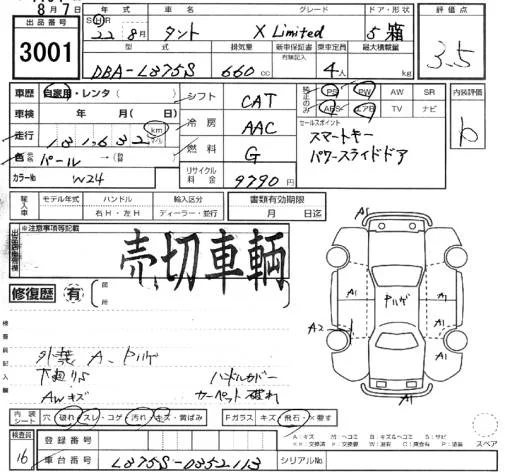 8月7
出品番号 年式 車名 グレード ドア・形状 評価点
3001 22 8月 タント X Limited 5 箱 3.5
型式 排気量 新車保証書 乗車定員 最大積載量
有無記入
DBA-L375S 660 cc 4人 kg
車歴 自家用・レンタ( ) シフト CAT 純正のみ PS PW AW SR 内装評価
車検 年 月( ) 冷房 AAC ABS エアB TV ナビ b
走行 km 燃料 G セールスポイント
色 パール → スマートキー
カラーNo W24 リサイクル料金 9790円 パワースライドドア
輸入車 モデル年式 ハンドル 輸入区分 書類有効期限
右H・左H ディーラー・並行 月 日迄
※注意事項等記載
売切車輌
修復歴 有 箇所
A1
A1 ハゲ A1
A2
A1
検査員記入欄
外装 A、ハゲ
下廻りS ハンドルカバー
AWキズ カーペット破れ
内装シート 穴・破れ・スレ・コゲ・汚れ・キズ・黄ばみ Fガラス キズ・飛石・×要す
検査員 登録番号
16 車台番号 L375S-0352113 シリアルNo.
A:キズ M:ヘコミ B:キズ&ヘコミ S:サビ
スペア